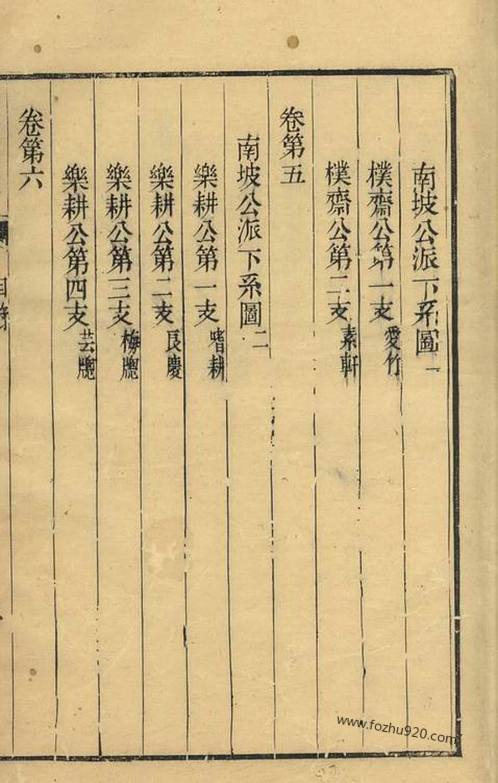 南坡公派下系圖一
樸齋公第一支愛竹
樸齋公第二支素軒
卷第五
南坡公派下系圖二
樂耕公第一支嗜耕
樂耕公第二支長慶
樂耕公第三支梅牕
樂耕公第四支芸牕
卷第六
www.fozhu920.com